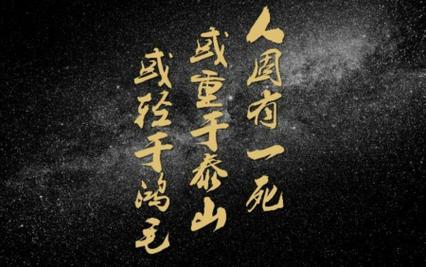 人固有一死
或重于泰山
或轻于鸿毛